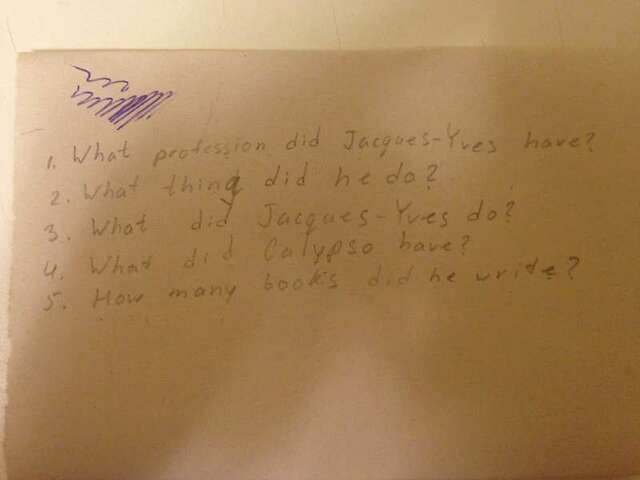 1. What profession did Jacques-Yves have?
2. What thing did he do?
3. What did Jacques-Yves do?
4. What did Calypso have?
5. How many books did he write?